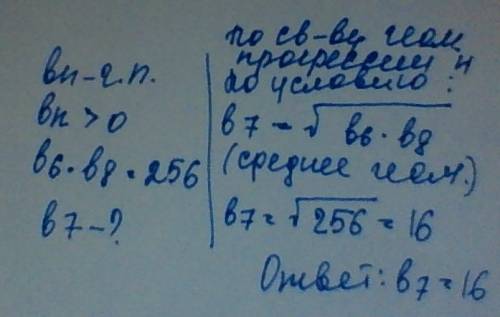 вn - г.п.
вn > 0
в6 · в8 = 256
в7 - ?
по св-ву геом.
прогрессии и
по условию :
в7 = √в6 · в8
(среднее геом.)
в7 = √256 = 16
Ответ: в7 = 16